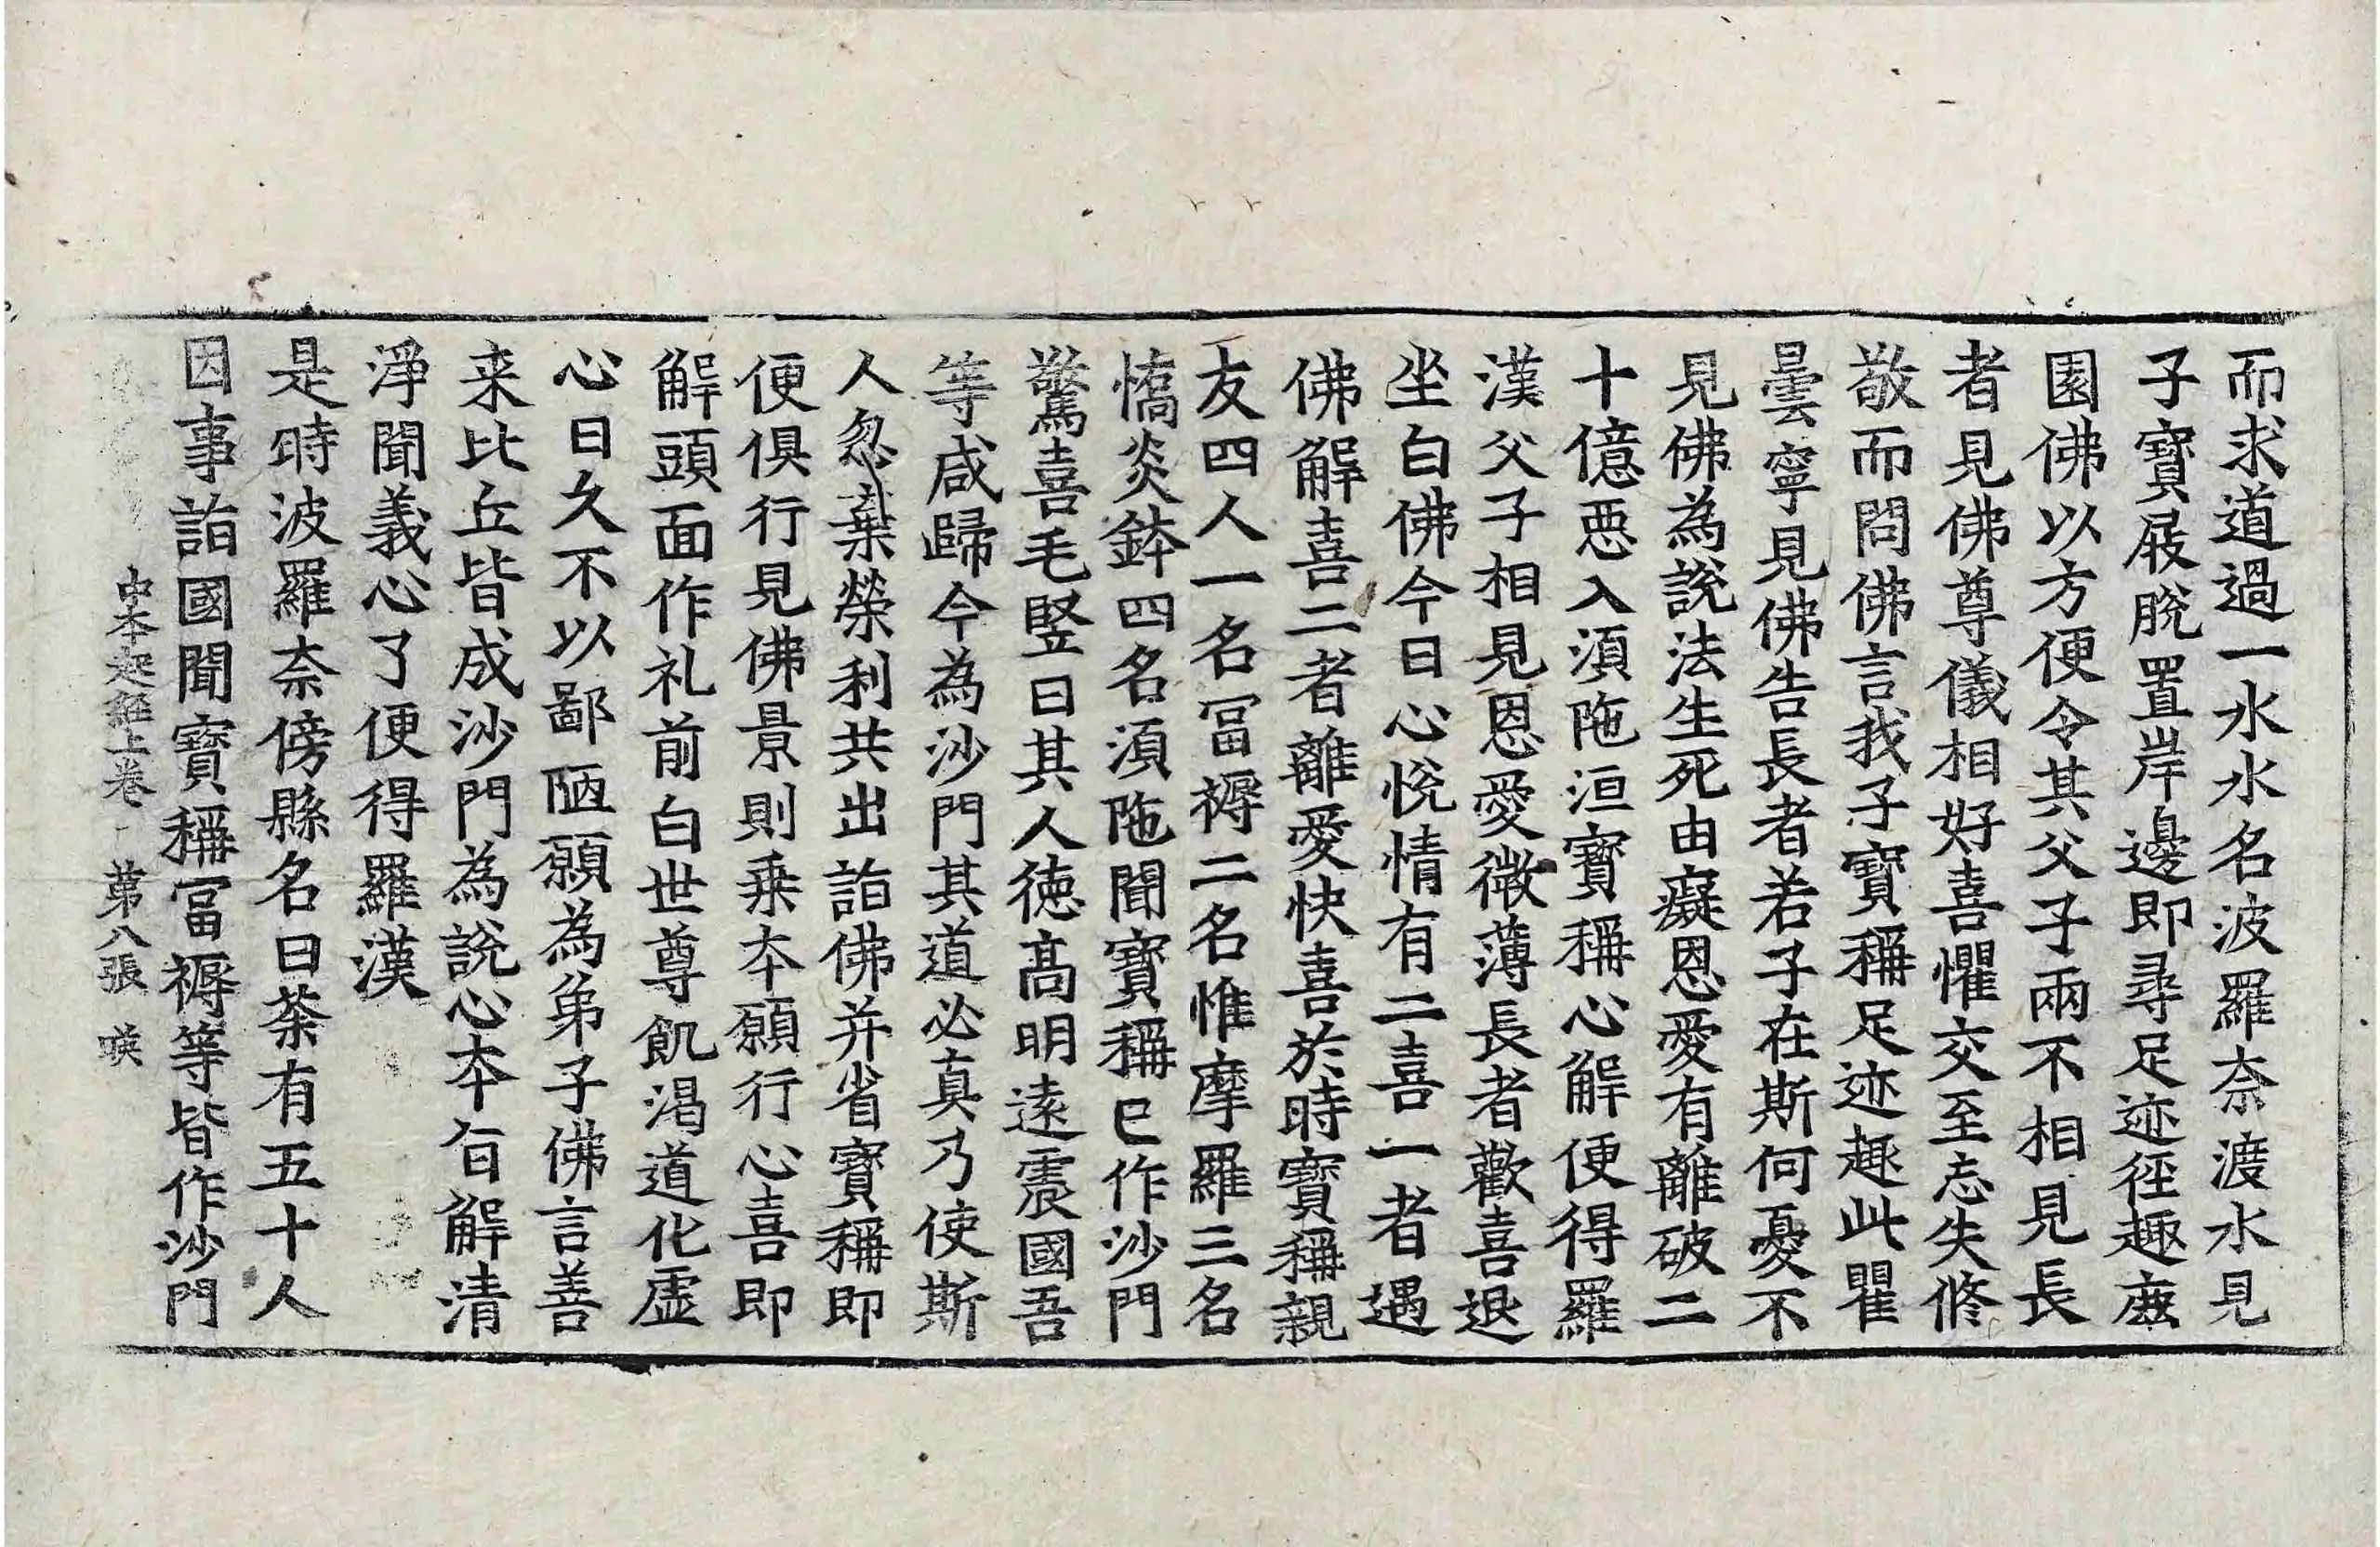 而求道過一水水名波羅奈渡水見
子寶屐脫置岸邊即尋足迹徑趣鹿
園佛以方便令其父子兩不相見長
者見佛尊儀相好喜懼交至忘失修
敬而問佛言我子寶稱足迹趣此瞿
曇寧見佛告長者若子在斯何憂不
見佛為說法生死由癡恩愛有離破二
十億惡入須陁洹寶稱心解便得羅
漢父子相見恩愛微薄長者歡喜退
坐白佛今日心悅情有二喜一者遇
佛解喜二者離愛快喜於時寶稱親
友四人一名冨褥二名惟摩羅三名
憍炎鉢四名須陁聞寶稱已作沙門
驚喜毛竪曰其人德高明遠震國吾
等咸歸今為沙門其道必真乃使斯
人忽棄榮利共出詣佛并省寶稱即
便俱行見佛景則乗本願行心喜即
解頭面作礼前白世尊飢渴道化虛
心日久不以鄙陋願為弟子佛言善
来比丘皆成沙門為說心本旨解清
淨聞義心了便得羅漢
是時波羅奈傍縣名曰荼有五十人
因事詣國聞寶稱冨褥等皆作沙門
中本起經上卷 第八張 唊